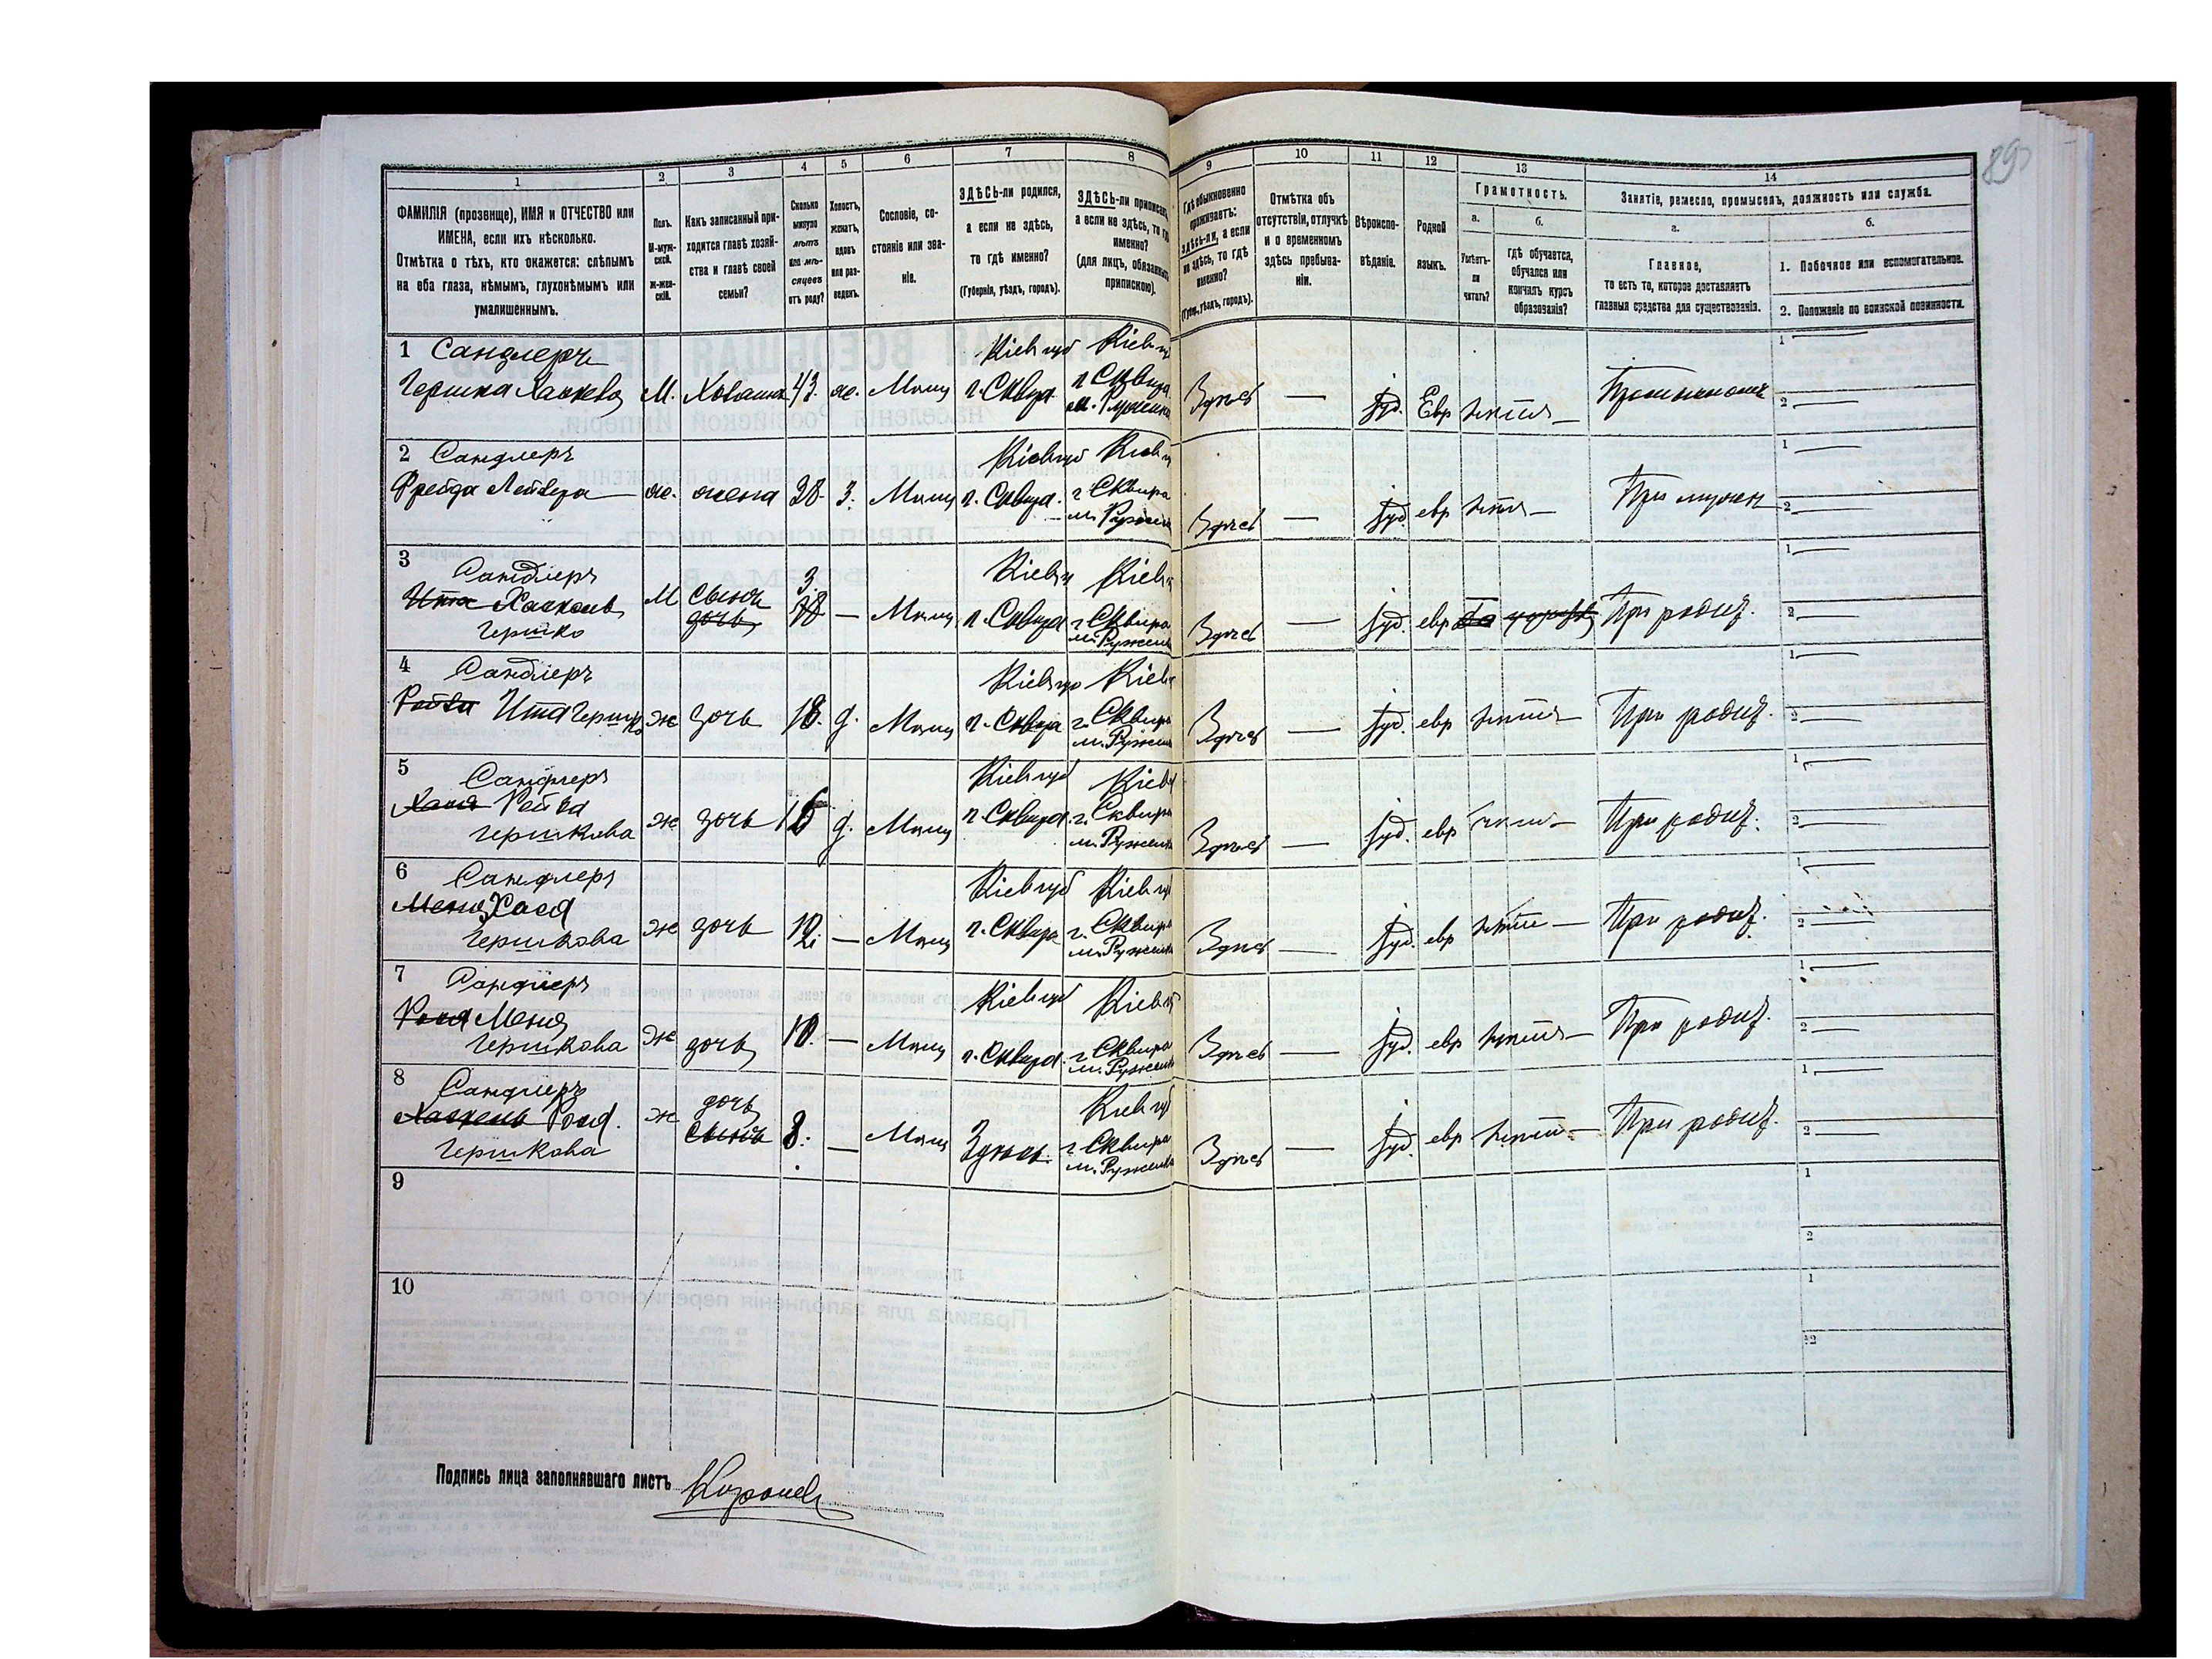 89
1
2
3
4
5
6
7
8
9
10
11
12
13
14
ФАМИЛІЯ (прозвище), ИМЯ и ОТЧЕСТВО или
ИМЕНА, если ихъ нѣсколько.
Отмѣтка о тѣхъ, кто окажется: слѣпымъ
на оба глаза, нѣмымъ, глухонѣмымъ или
умалишеннымъ.
Полъ.
М-муж-
ской.
ж-жен-
скій.
Какъ записанный при-
ходится главѣ хозяй-
ства и главѣ своей
семьи?
Сколько
минуло
лѣтъ
или мѣ-
сяцевъ
отъ роду?
Холостъ,
женатъ,
вдовъ
или раз-
веденъ.
Сословіе, со-
стояніе или зва-
ніе.
ЗДѢСЬ-ли родился,
а если не здѣсь,
то гдѣ именно?
(Губернія, уѣздъ, городъ).
ЗДѢСЬ-ли приписанъ,
а если не здѣсь, то гдѣ
именно?
(для лицъ, обязанныхъ
припискою).
Гдѣ обыкновенно
проживаетъ:
здѣсь-ли, а если
не здѣсь, то гдѣ
именно?
(Губ., уѣздъ, городъ).
Отмѣтка объ
отсутствіи, отлучкѣ
и о временномъ
здѣсь пребыва-
ніи.
Вѣроиспо-
вѣданіе.
Родной
языкъ.
Грамотность.
а.
б.
Умѣетъ-
ли
читать?
гдѣ обучается,
обучался или
кончилъ курсъ
образованія?
Занятіе, ремесло, промыселъ, должность или служба.
а.
б.
Главное,
то есть то, которое доставляетъ
главныя средства для существованія.
1. Побочное или вспомогательное.
2. Положеніе по воинской повинности.
1 Сандлеръ Кіев губ Кіев
М. 43. ж. Мѣщ г. Сквира г Сквира Здѣсь — Іуд. Евр 1 2
2 Сандлеръ Кіев губ Кіев
Фрейда Лейзера ж. жена 38. з. Мѣщ г. Сквира. г Сквира Здѣсь — Іуд. евр При мужѣ 1 2
3 Сандлеръ 3. Кіев Кіев
Ита Хаскель М сынъ дочь 18 — Мѣщ г. Сквира г Сквира Здѣсь — Іуд. евр При родит. 1 2
Гершко
4 Сандлеръ Кіев губ Кіев
Рейза Ита Гершко ж дочь 18. д. Мѣщ г. Сквира г. Сквира Здѣсь — Іуд. евр При родит. 1 2
5 Сандлеръ Кіев губ Кіев
Хася Рейза ж дочь 16 д. Мѣщ г. Сквира г. Сквира Здѣсь — Іуд. евр При родит. 1 2
Гершкова
6 Сандлеръ Кіев губ Кіев губ
Меня Хася
Гершкова ж дочь 12. — Мѣщ г. Сквира г. Сквира Здѣсь — Іуд. евр При родит. 1 2
7 Сандлеръ Кіев губ Кіев
Рося Меня
Гершкова ж дочь 10. — Мѣщ г. Сквира г Сквира Здѣсь — Іуд. евр При родит. 1 2
8 Сандлеръ дочь Кіев губ
Хаскель Рося. ж сынъ 8. — Мѣщ Здѣсь. г. Сквира Здѣсь — Іуд. евр При родит. 1 2
Гершкова
9 1
2
10 1
2
Подпись лица заполнявшаго листъ